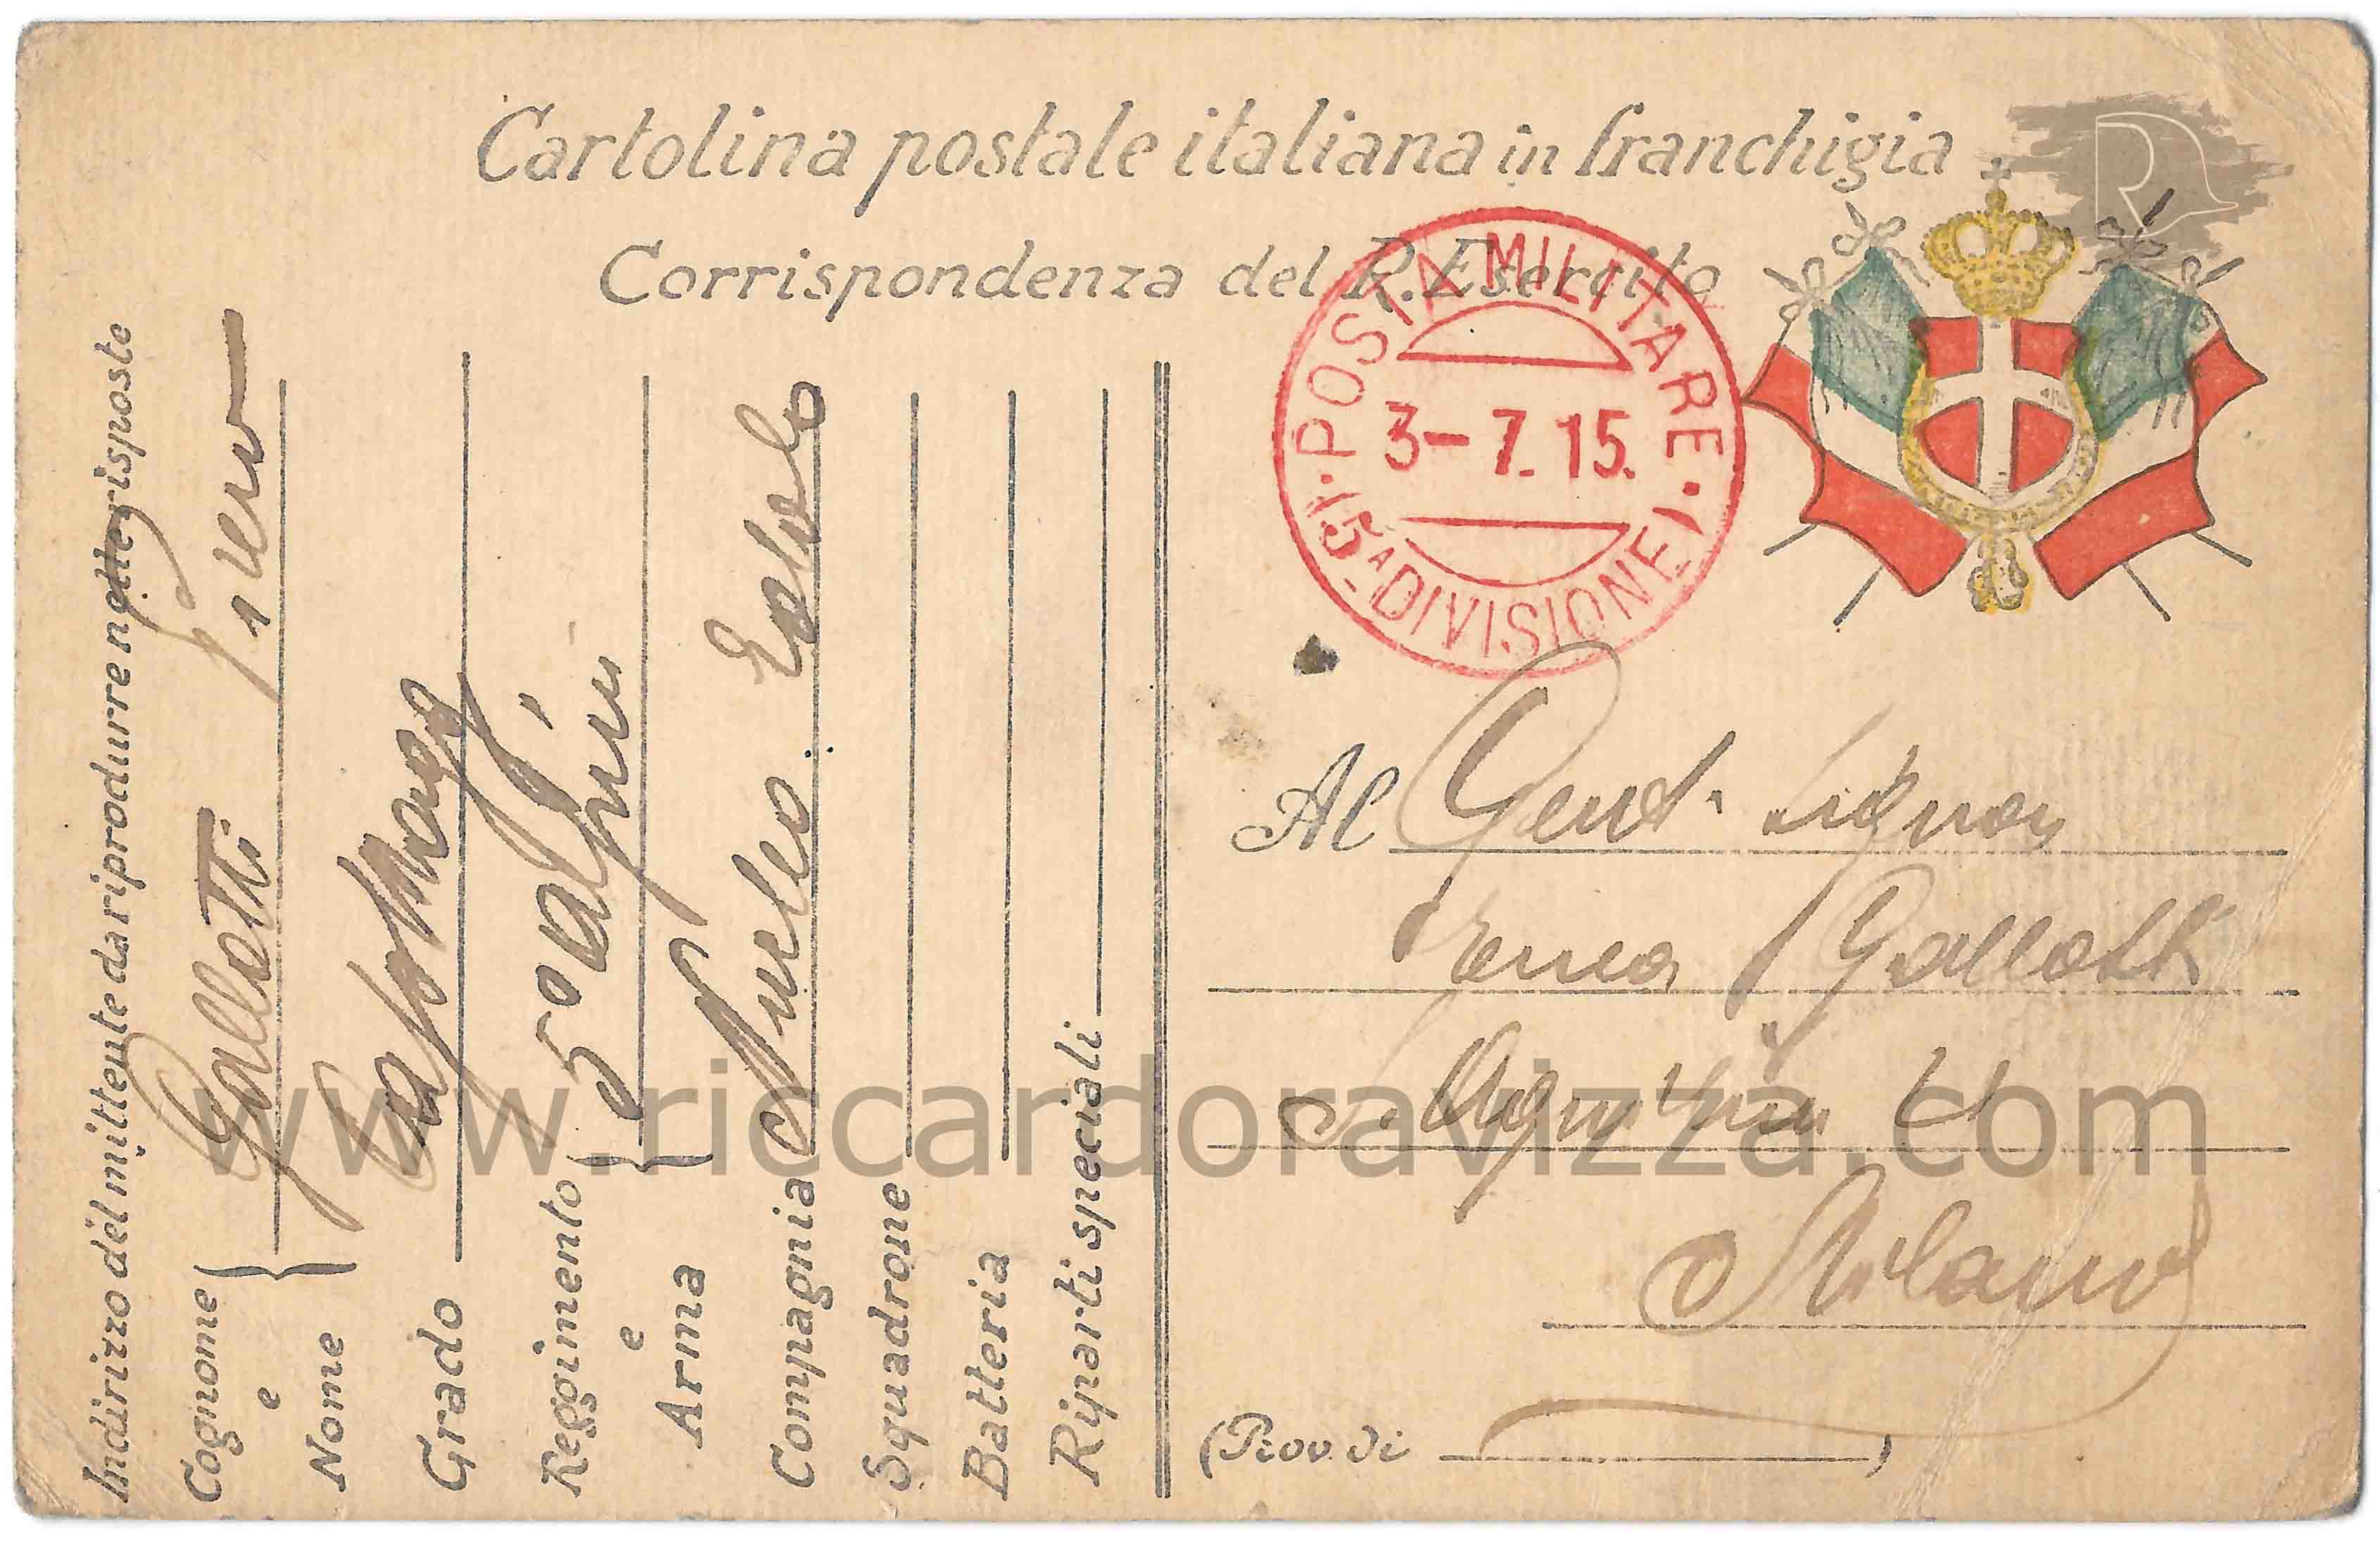 Cartolina postale italiana in franchigia
Corrispondenza del R. Esercito
POSTA MILITARE
3-7.15.
(5ª DIVISIONE)
Indirizzo del mittente da riprodurre nelle risposte
Cognome e Nome } Gallotti Piero
Grado
Reggimento e Arma } 5° Alpini
Compagnia Nucleo
Squadrone
Batteria
Riparti speciali
Al Gent. Signora
Gallotti
S. Agnese
Milano
(Prov. di )
www.riccardoravizza.com
R